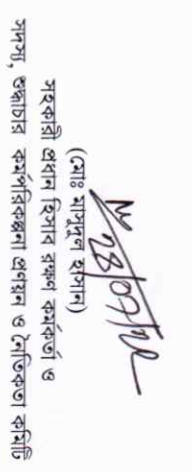 ২৪/০৭/২২
(মোঃ মামুনুল হাসান)
সহকারী প্রধান হিসাব রক্ষণ কর্মকর্তা ও
সদস্য, শুদ্ধাচার কর্মপরিকল্পনা প্রণয়ন ও নৈতিকতা কমিটি